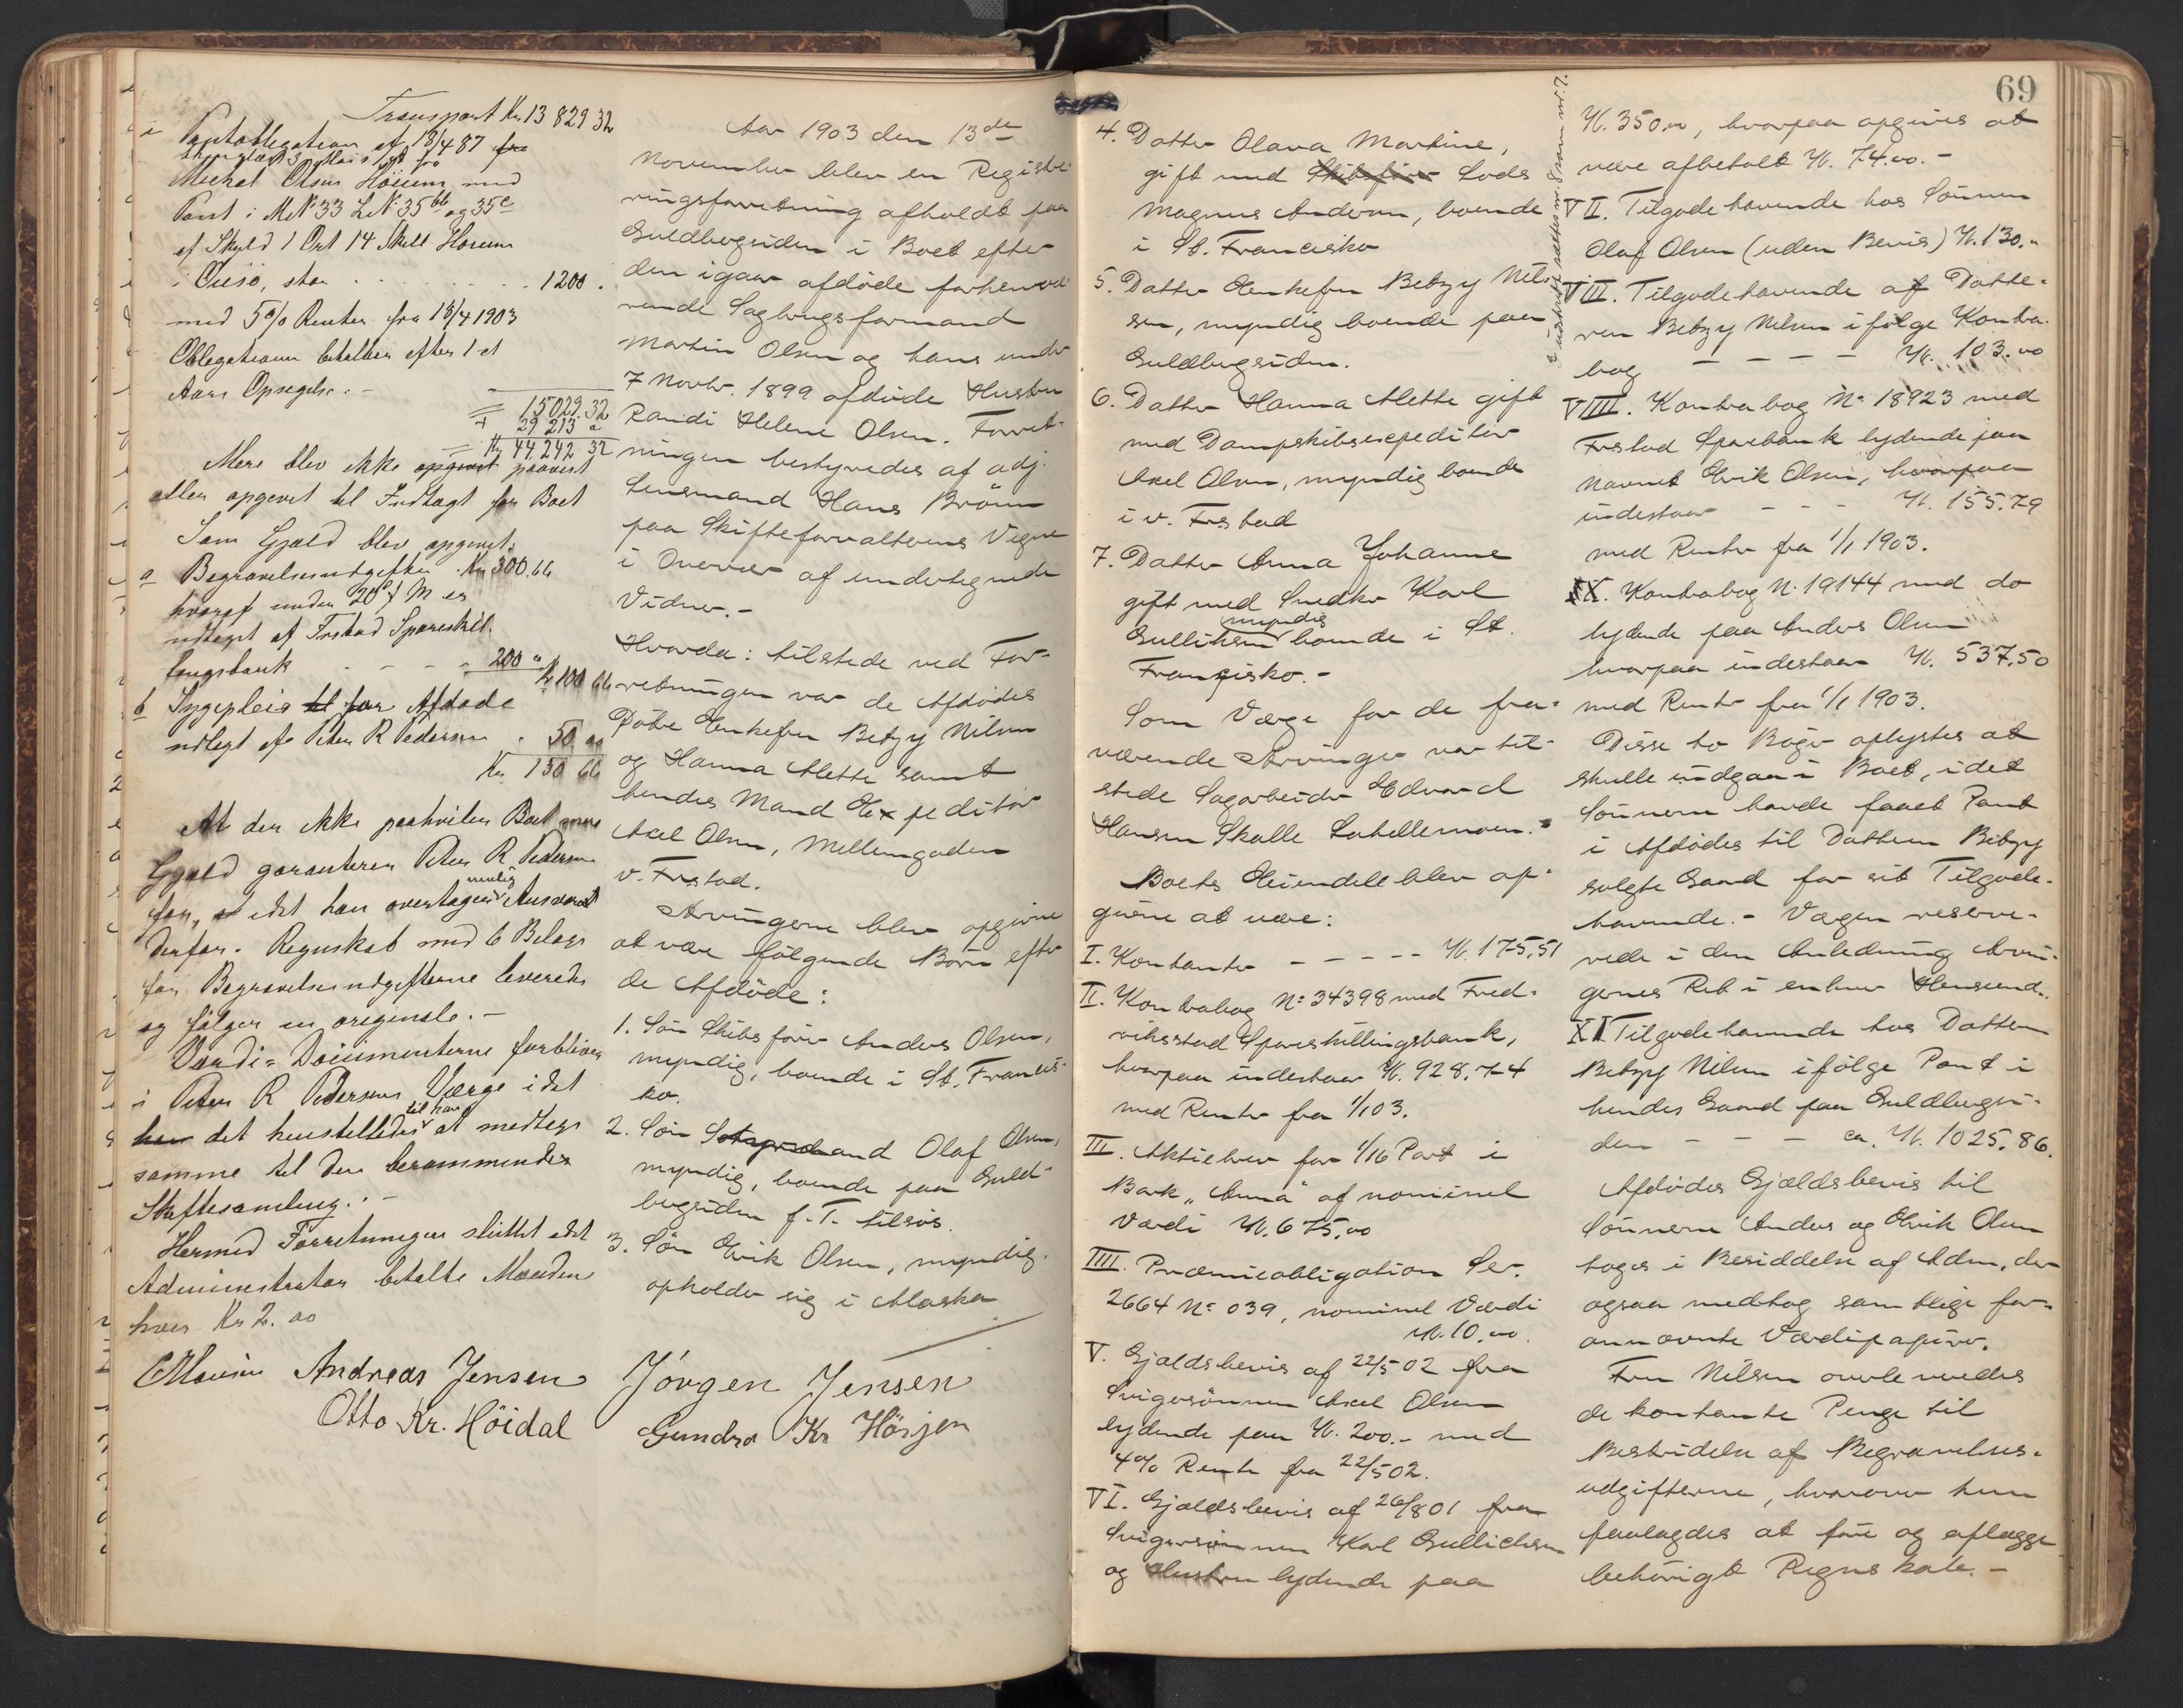 Transport Kr 13 829 32
i Pantobligation af 13/4 87 fra
Michal Olsen Höium med
Pant i MN° 33 LN° 35 bb og 35 c
af Skyld 1 Ort 14 Skill Höium
i Onsö, stor . . . . . . 1200 .
med 5 % Renter fra 13/4 1903
Obligationen betalbar efter 1 et
Aars Opsigelse. -
= 15029.32
+ 29 213 "
= Kr 44.242 32
Mere blev ikke opgivet paavist
eller opgivet til Indtægt for Boet
Som Gjæld blev opgivet:
a Begravelsesudgifter . Kr 300.66
hvoraf under 20 d. M er
udtaget af Frstad Spareskil-
lingsbank - - - - 200 "
Kr 100 66
b Sygepleie til for Afdöde
udlagt af Peter R Pedersen . 50 00
Kr. 150 66
At der ikke paahviler Boet mere
Gjæld garanterer Peter R. Pedersen
for, at idet han overtager mulig Ansvaret
derfor. Regnskab med 6 Bilage
for Begravelsesudgifterne leveredes
og fölger in originale. -
Værdi= Documenterne forbliver
i Peter R Pedersens Værge idet
han det henstilledes til ham at medtage
samme til den berammende
Skiftesamling. -
Hermed Forretningen sluttet idet
Administrator betalte Mænden
hver Kr 2.00
Andreas Jensen Jörgen Jensen
Otto Kr. Höidal Gunder Kr Hörjen
Aar 1903 den 13de
November blev en Registre-
ringsforretning afholdt paa
Guldbergsiden i Boet efter
den igaar afdöde forhenvæ-
rende Sagbrugsformand
Martin Olsen og hans under
7 Novbr. 1899 afdöde Hustru
Randi Helene Olsen. Forret-
ningen bestyredes af adj.
Lensmand Hans Brönn
paa Skifteforvalterens Vegne
i Overvær af undertegnede
Vidner. -
Hvorda: tilstede ved For-
retningen var de Afdödes
Dötre Enkefru Betzy Nilsen
og Hanna Mette samt
hendes Mand Expeditör
Axel Olsen, Mellemgaden
v. Frstad.
Arvingerne blev opgivne
at være fölgende Börn efter
de Afdöde:
1. Sön Skibsförer Anders Olsen,
myndig, boende i St. Francis-
ko.
2. Sön Olaf Olsen,
myndig, boende paa Guld-
bergsiden f. T. tilsös.
3. Sön Erik Olsen, myndig.
opholder sig i Alaska
69
4. Datter Olava Martine,
gift med Skibsförer Lods
Magnus Andersen, boende
i St. Francisko
5. Datter Enkefru Betzy Nil-
sen, myndig boende paa
Guldbergsiden.
6. Datter Hanna Mette gift
med Dampskibsexpeditör
Axel Olsen, myndig boende
i v. Frstad
7. Datter Anna Johanne
gift med Snedker Karl
Gulliksen myndig boende i St.
Francisko. -
Som Værge for de fra-
værende Arvinger var til-
stede Sagarbeider Edvard
Hansen Skalle Labellemoen. -
Boets Eiendele blev op-
givne at være:
I. Kontanter - - - - - Kr. 175,51
II. Kontrabog N° 34398 med Fred-
riksstad Spareskillingsbank,
hvorpaa indestaar Kr. 928.74
med Renter fra 1/1 03.
III. Aktiebrev for 1/16 Part i
Bark "Anna" af nominel
Værdi Kr. 675,00
IIII. Præmieobligation Ser.
2664 N° 039, nominel Værdi
Kr. 10.00.
V. Gjældsbevis af 22/5 02 fra
Svigersönnen Axel Olsen
lydende paa Kr. 200.- med
4% Rente fra 22/5 02.
VI. Gjældsbevis af 26/8 01 fra
Svigersönnen Karl Gullichsen
og Hustru lydende paa
Kr. 350.00, hvorpaa opgives at
være afbetalt Kr. 74.00. -
VII. Tilgodehavende hos Sönnen
Olaf Olsen (uden Bevis) Kr. 130.-
VIII. Tilgodehavende af Datte-
ren Betzy Nilsen ifölge Kontra-
bog - - - - Kr. 103.00
VIIII. Kontrabog N° 18923 med
Frstad Sparebank lydende paa
Navnet Erik Olsen, hvorpaa
indestaar - - - Kr. 155.79
med Renter fra 1/1 1903.
IX. Kontrabog N° 19144 med do
lydende paa Anders Olsen
hvorpaa indestaar Kr. 537,50
med Renter fra 1/1 1903.
Disse to Böger oplystes at
skulle indgaa i Boet, idet
Sönnerne havde faaet Pant
i Afdödes til Datteren Betzy
solgte Gaard for sit Tilgode-
havende. - Værgen reserve-
rede i den Anledning Arvin-
gernes Ret i enhver Henseende.
XI Tilgodehavende hos Datteren
Betzy Nilsen ifölge Pant i
hendes Gaard paa Guldbergsi-
den - - - - ca. Kr. 1025.86.
Afdödes Gjældsbevis til
Sönnerne Anders og Erik Olsen
toges i Besiddelse af Adm. der
ogsaa medtog samtlige for-
annævnte Værdipapirer.
Fru Nilsen overleveredes
de kontante Penge til
Bestridelse af Begravelses-
udgifterne, hvorover hun
paalagdes at före og aflægge
behörigt Regnskab. -